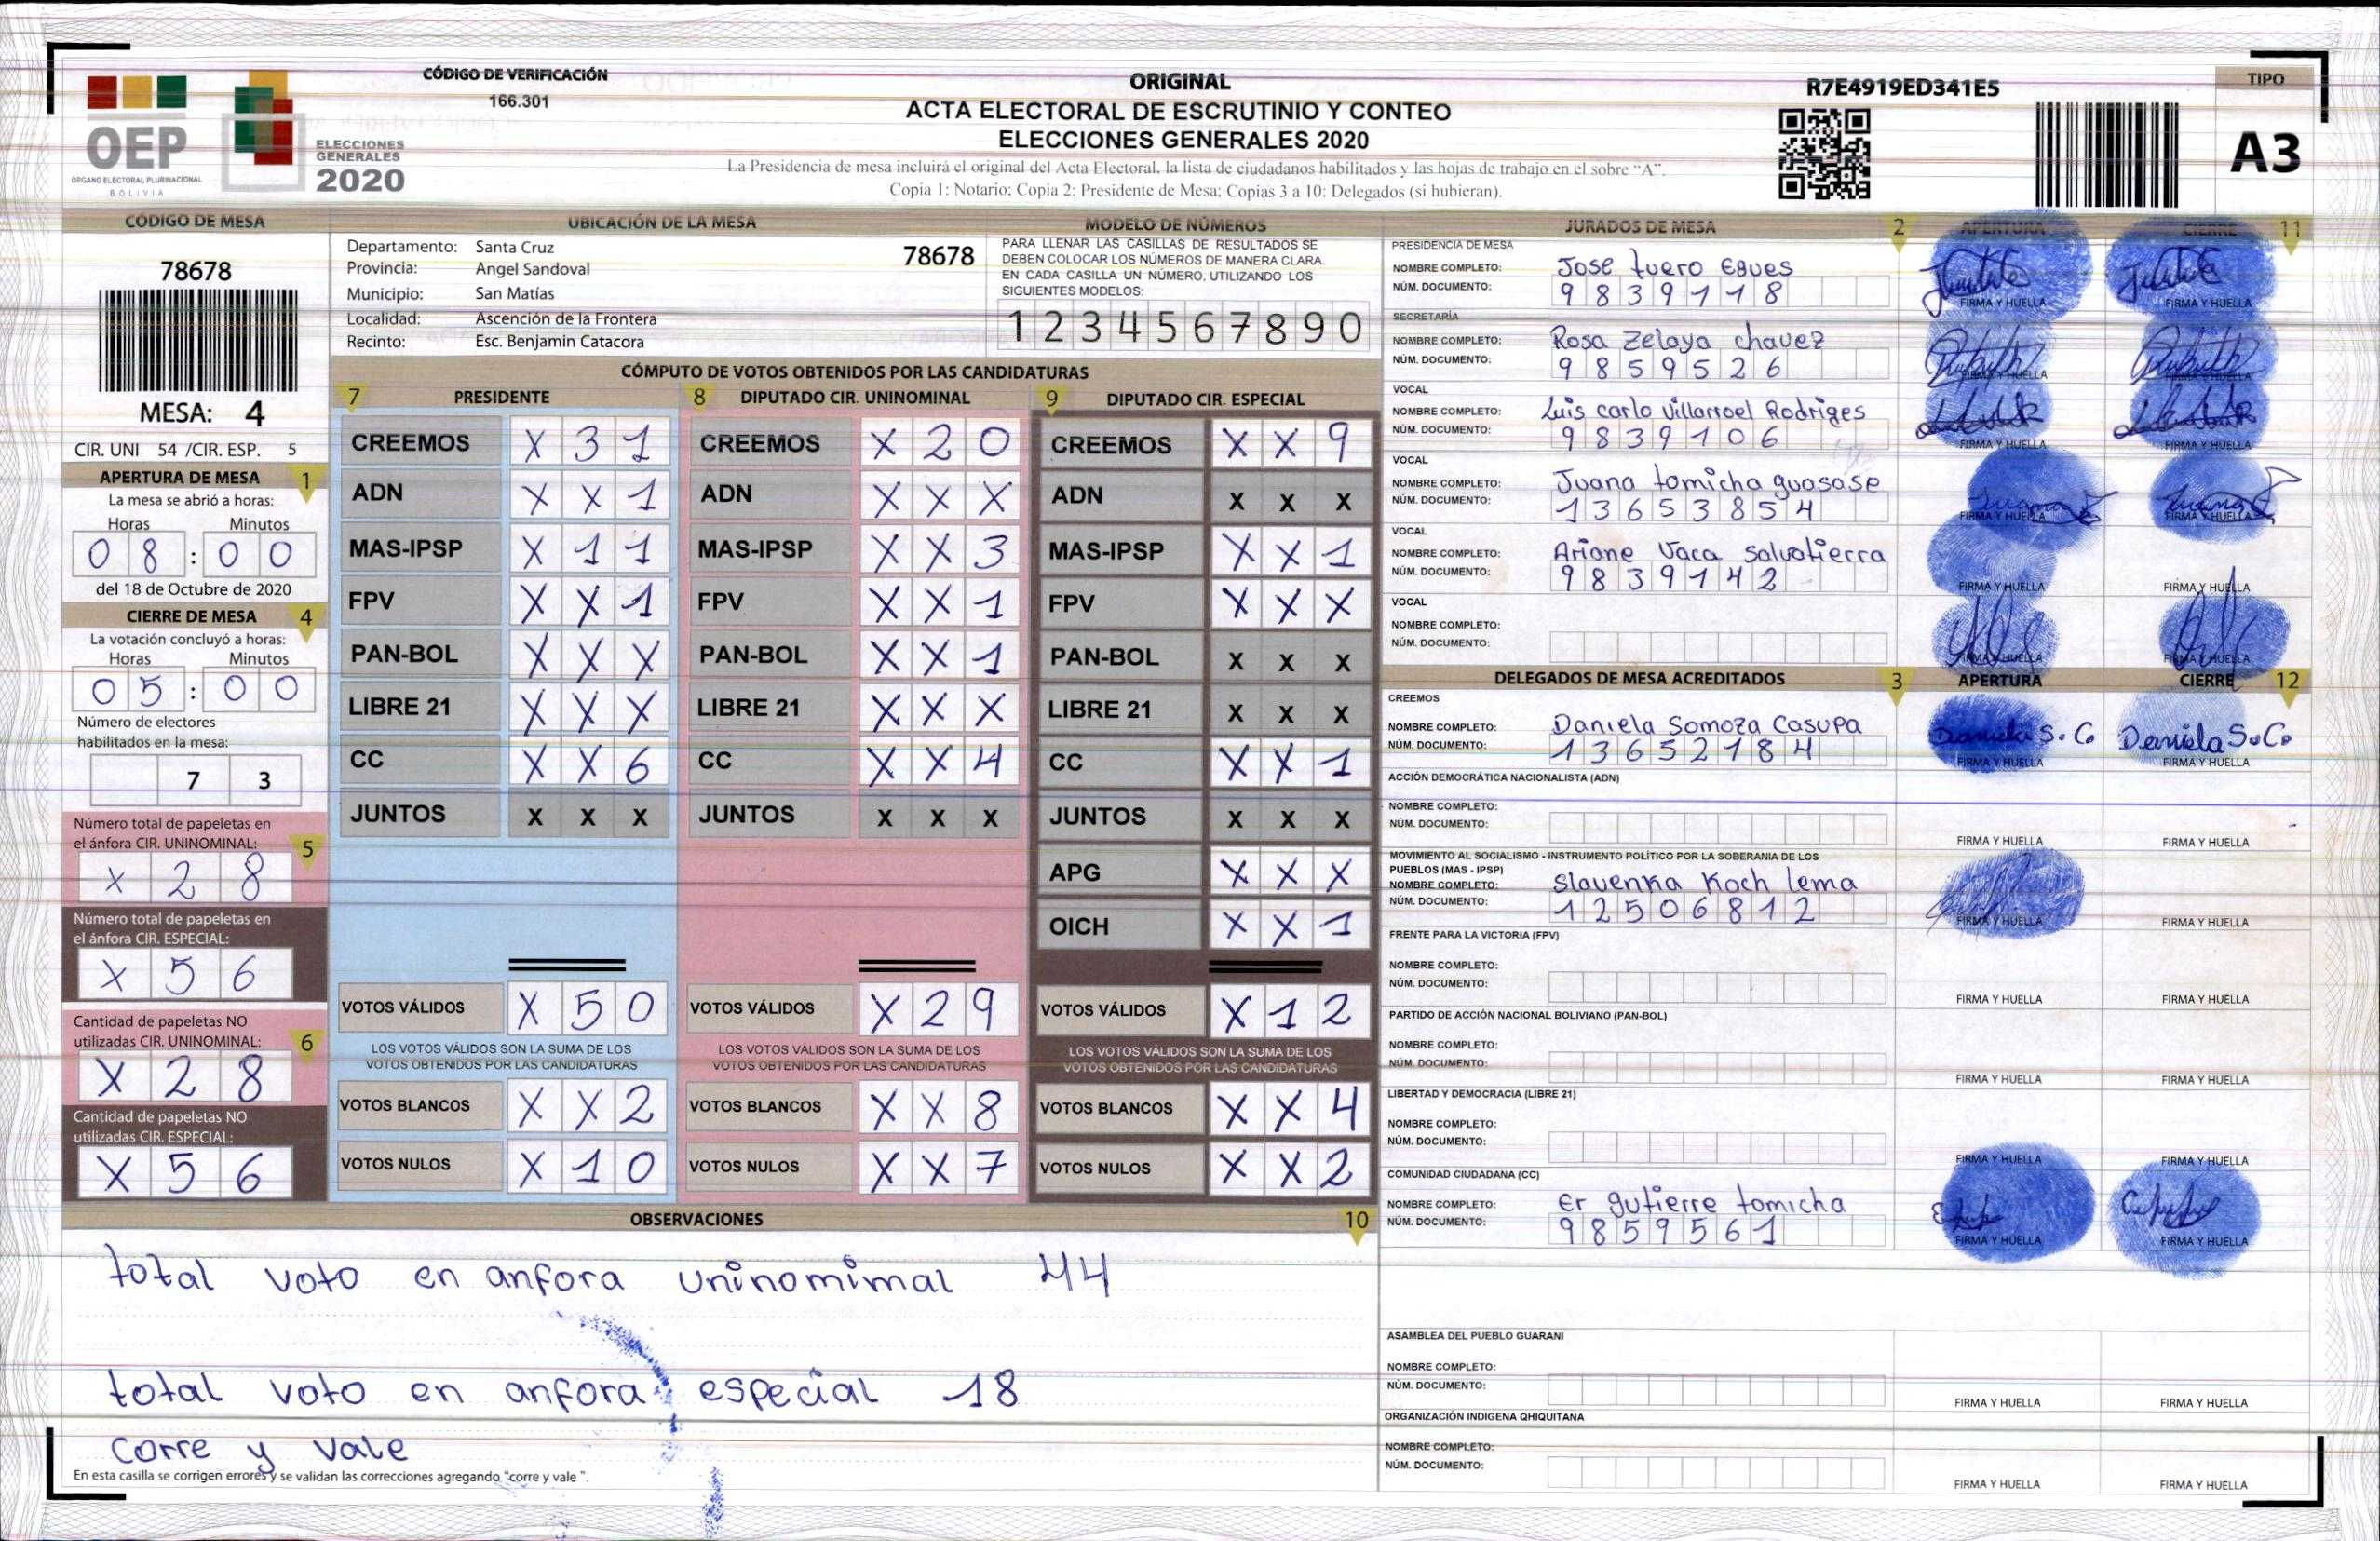 CÓDIGO DE VERIFICACIÓN
166.301
ORIGINAL
ACTA ELECTORAL DE ESCRUTINIO Y CONTEO
ELECCIONES GENERALES 2020
La Presidencia de mesa incluirá el original del Acta Electoral, la lista de ciudadanos habilitados y las hojas de trabajo en el sobre "A".
Copia 1: Notario; Copia 2: Presidente de Mesa; Copias 3 a 10: Delegados (si hubieran).
R7E4919ED341E5
TIPO
A3
OEP
ÓRGANO ELECTORAL PLURINACIONAL
BOLIVIA
ELECCIONES
GENERALES
2020
CÓDIGO DE MESA
78678
MESA: 4
CIR. UNI 54 /CIR. ESP. 5
APERTURA DE MESA 1
La mesa se abrió a horas:
Horas Minutos
0 8 : 0 0
del 18 de Octubre de 2020
CIERRE DE MESA 4
La votación concluyó a horas:
Horas Minutos
0 5 : 0 0
Número de electores
habilitados en la mesa:
7 3
Número total de papeletas en
el ánfora CIR. UNINOMINAL: 5
X 2 8
Número total de papeletas en
el ánfora CIR. ESPECIAL:
X 5 6
Cantidad de papeletas NO
utilizadas CIR. UNINOMINAL: 6
X 2 8
Cantidad de papeletas NO
utilizadas CIR. ESPECIAL:
X 5 6
UBICACIÓN DE LA MESA
Departamento: Santa Cruz 78678
Provincia: Angel Sandoval
Municipio: San Matías
Localidad: Ascención de la Frontera
Recinto: Esc. Benjamin Catacora
MODELO DE NÚMEROS
PARA LLENAR LAS CASILLAS DE RESULTADOS SE
DEBEN COLOCAR LOS NÚMEROS DE MANERA CLARA.
EN CADA CASILLA UN NÚMERO, UTILIZANDO LOS
SIGUIENTES MODELOS:
1 2 3 4 5 6 7 8 9 0
CÓMPUTO DE VOTOS OBTENIDOS POR LAS CANDIDATURAS
7 PRESIDENTE
CREEMOS X 3 1
ADN X X 1
MAS-IPSP X 1 1
FPV X X 1
PAN-BOL X X X
LIBRE 21 X X X
CC X X 6
JUNTOS X X X
VOTOS VÁLIDOS X 5 0
LOS VOTOS VÁLIDOS SON LA SUMA DE LOS
VOTOS OBTENIDOS POR LAS CANDIDATURAS
VOTOS BLANCOS X X 2
VOTOS NULOS X 1 0
8 DIPUTADO CIR. UNINOMINAL
CREEMOS X 2 0
ADN X X X
MAS-IPSP X X 3
FPV X X 1
PAN-BOL X X 1
LIBRE 21 X X X
CC X X 4
JUNTOS X X X
VOTOS VÁLIDOS X 2 9
LOS VOTOS VÁLIDOS SON LA SUMA DE LOS
VOTOS OBTENIDOS POR LAS CANDIDATURAS
VOTOS BLANCOS X X 8
VOTOS NULOS X X 7
9 DIPUTADO CIR. ESPECIAL
CREEMOS X X 9
ADN X X X
MAS-IPSP X X 1
FPV X X X
PAN-BOL X X X
LIBRE 21 X X X
CC X X 1
JUNTOS X X X
APG X X X
OICH X X 1
VOTOS VÁLIDOS X 1 2
LOS VOTOS VÁLIDOS SON LA SUMA DE LOS
VOTOS OBTENIDOS POR LAS CANDIDATURAS
VOTOS BLANCOS X X 4
VOTOS NULOS X X 2
OBSERVACIONES 10
total voto en anfora uninomimal 44
total voto en anfora especial 18
corre y vale
En esta casilla se corrigen errores y se validan las correcciones agregando "corre y vale ".
JURADOS DE MESA 2 APERTURA CIERRE 11
PRESIDENCIA DE MESA
NOMBRE COMPLETO: Jose tuero Egues
NÚM. DOCUMENTO: 9 8 3 9 1 1 8
FIRMA Y HUELLA FIRMA Y HUELLA
SECRETARÍA
NOMBRE COMPLETO: Rosa Zelaya chavez
NÚM. DOCUMENTO: 9 8 5 9 5 2 6
FIRMA Y HUELLA FIRMA Y HUELLA
VOCAL
NOMBRE COMPLETO: Luis carlo Villarroel Rodriges
NÚM. DOCUMENTO: 9 8 3 9 1 0 6
FIRMA Y HUELLA FIRMA Y HUELLA
VOCAL
NOMBRE COMPLETO: Juana tomicha guasase
NÚM. DOCUMENTO: 1 3 6 5 3 8 5 4
FIRMA Y HUELLA FIRMA Y HUELLA
VOCAL
NOMBRE COMPLETO: Ariane Vaca Salvatierra
NÚM. DOCUMENTO: 9 8 3 9 1 4 2
FIRMA Y HUELLA FIRMA Y HUELLA
VOCAL
NOMBRE COMPLETO:
NÚM. DOCUMENTO:
FIRMA Y HUELLA FIRMA Y HUELLA
DELEGADOS DE MESA ACREDITADOS 3 APERTURA CIERRE 12
CREEMOS
NOMBRE COMPLETO: Daniela Somoza Casupa
NÚM. DOCUMENTO: 1 3 6 5 2 1 8 4
Daniela S. C. Daniela S. C.
FIRMA Y HUELLA FIRMA Y HUELLA
ACCIÓN DEMOCRÁTICA NACIONALISTA (ADN)
NOMBRE COMPLETO:
NÚM. DOCUMENTO:
FIRMA Y HUELLA FIRMA Y HUELLA
MOVIMIENTO AL SOCIALISMO - INSTRUMENTO POLÍTICO POR LA SOBERANIA DE LOS
PUEBLOS (MAS - IPSP)
NOMBRE COMPLETO: Slavenka Koch lema
NÚM. DOCUMENTO: 1 2 5 0 6 8 1 2
FIRMA Y HUELLA FIRMA Y HUELLA
FRENTE PARA LA VICTORIA (FPV)
NOMBRE COMPLETO:
NÚM. DOCUMENTO:
FIRMA Y HUELLA FIRMA Y HUELLA
PARTIDO DE ACCIÓN NACIONAL BOLIVIANO (PAN-BOL)
NOMBRE COMPLETO:
NÚM. DOCUMENTO:
FIRMA Y HUELLA FIRMA Y HUELLA
LIBERTAD Y DEMOCRACIA (LIBRE 21)
NOMBRE COMPLETO:
NÚM. DOCUMENTO:
FIRMA Y HUELLA FIRMA Y HUELLA
COMUNIDAD CIUDADANA (CC)
NOMBRE COMPLETO: Er gutierre tomicha
NÚM. DOCUMENTO: 9 8 5 9 5 6 1
FIRMA Y HUELLA FIRMA Y HUELLA
ASAMBLEA DEL PUEBLO GUARANI
NOMBRE COMPLETO:
NÚM. DOCUMENTO:
FIRMA Y HUELLA FIRMA Y HUELLA
ORGANIZACIÓN INDIGENA QHIQUITANA
NOMBRE COMPLETO:
NÚM. DOCUMENTO:
FIRMA Y HUELLA FIRMA Y HUELLA